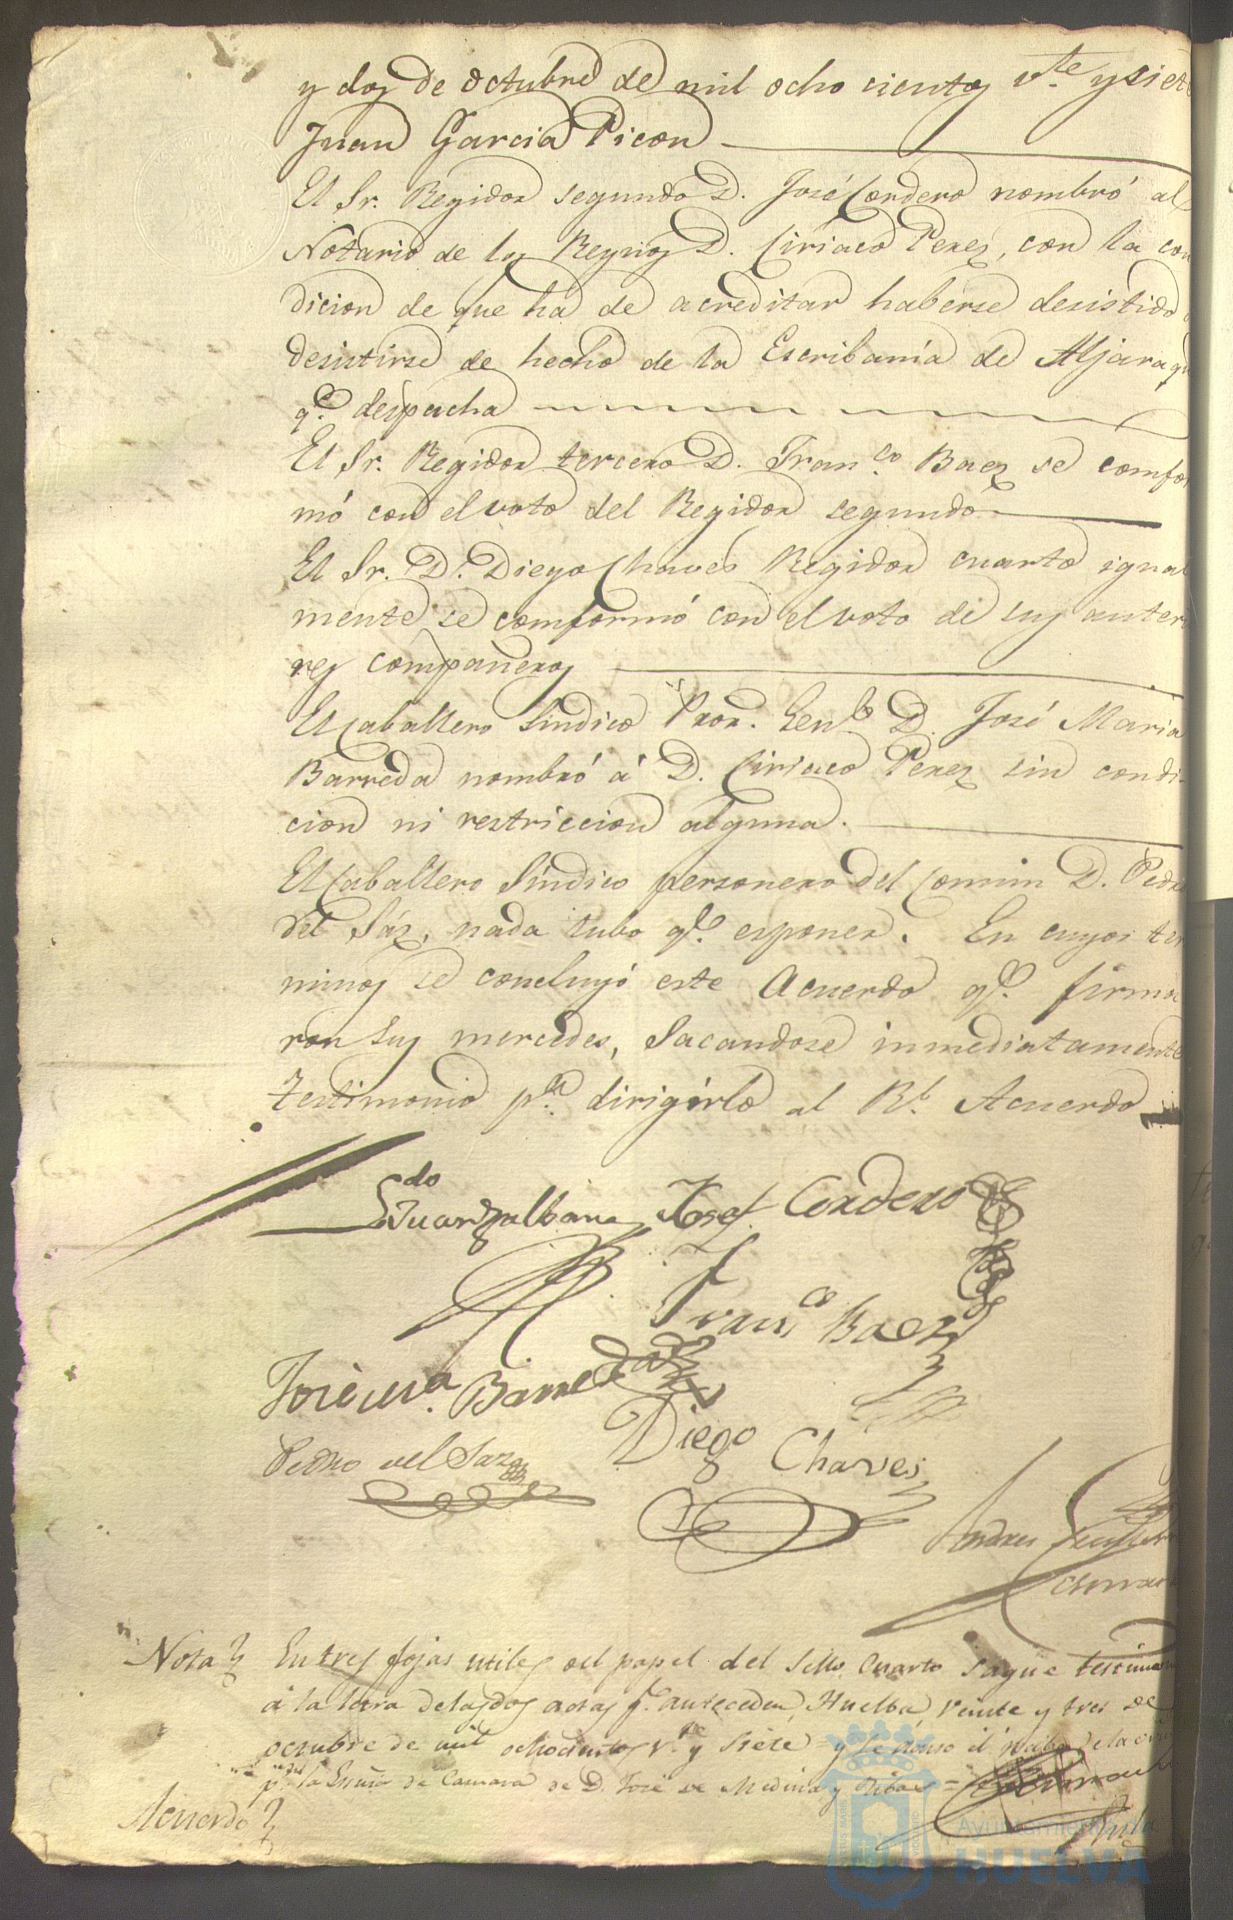 y dos de Octubre de mil ocho cientos v.te y siete
Juan Garcia Picon
El Sr. Regidor segundo D. José Cordero nombró al
Notario de los Reynos D. Ciriaco Perez, con la con
dicion de que ha de acreditar haberse desistido
desistirse de hecho de la Escribania de Aljaraqu
q.e despacha
El Sr. Regidor tercero D. Fran.co Baez se comfor
mó con el voto del Regidor segundo
El Sr. D.n Diego Chaves Regidor cuarto igual
mente se comformó con el voto de sus anterio
res compañeros
El Caballero Sindico Pror. Genl. D. José Maria
Barreda nombró á D. Ciriaco Perez sin condi-
cion ni restriccion alguna.
El Caballero Sindico personero del Comun D. Pedro
del Sáz, nada tubo q.e esponer. En cuyos ter
minos se concluyó este Acuerdo q.e firma
ron sus mercedes, Sacandose inmediatamente
testimonio p.a dirigirlo al Rl. Acuerdo
Josef Cordero
Fran.co Baez
José M.a Barreda
Diego Chaves
Pedro del Saz
Andres
Nota
En tres fojas utiles del papel del Sello Cuarto saque testimo
á la letra de las dos actas q.e anteceden, Huelba veinte y tres de
octubre de mil ochocientos v.te y siete y se
p.r la Esnia de Camara de D. José de Medina y Ribas =
Acuerdo
Ayuntamiento
HUELVA